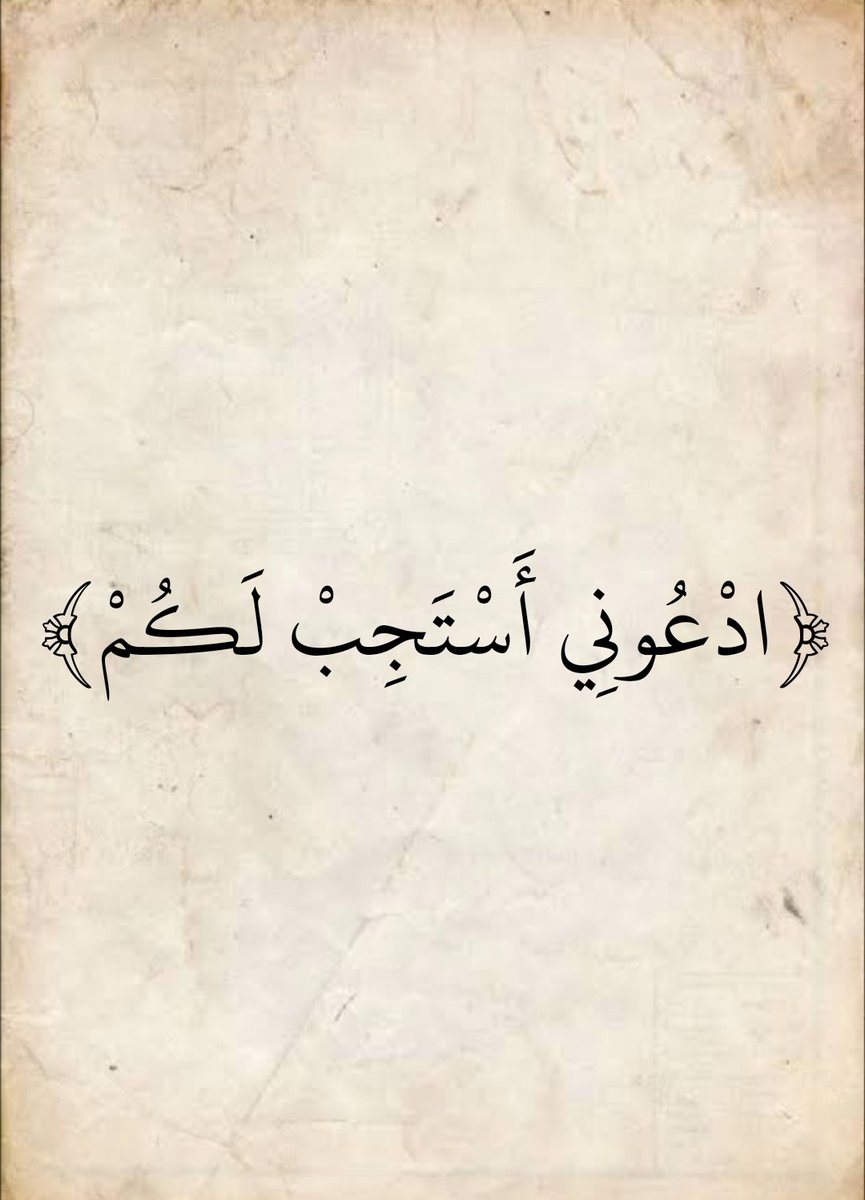 ﴿ادْعُونِي أَسْتَجِبْ لَكُمْ﴾